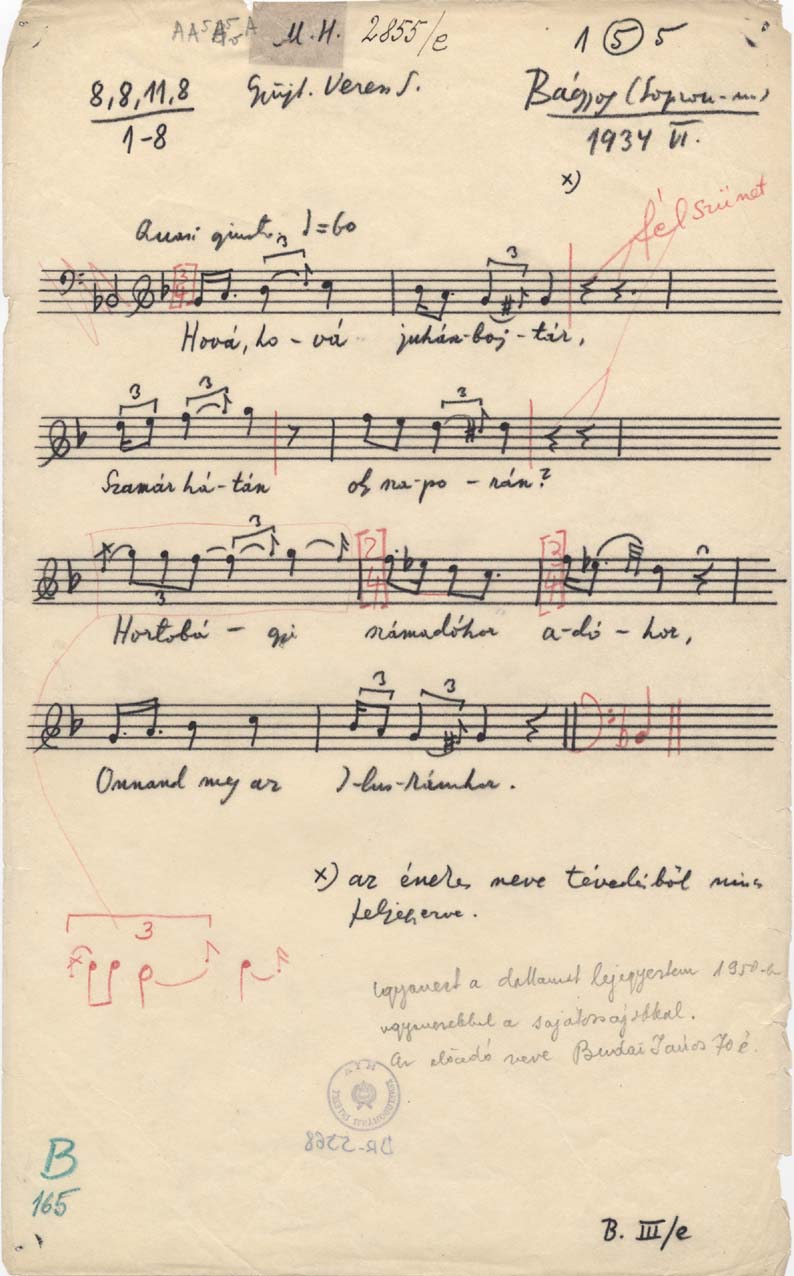 AA⁵A⁵A M.H. 2855/e
1 5 5
8, 8, 11, 8
1-8
Gyűjt. Veress S.
Bágyog (Sopron-m)
1934 VI.
x)
félszünet
Quasi giusto, ♩=60
3 3
3/4
Hová, ho - vá juhász-boj - tár,
3 3 3
Szamár há - tán oly na - po - rán?
3 3
2/4 3/4
Hortobá - gyi számadóhoz a - dó - hoz,
3 3
Onnand meg az
x) az énekes neve tévedésből nincs
feljegyezve.
3
ugyanezt a dallamot lejegyeztem 1950-b
ugyanezekkel a sajátosságokkal.
Az előadó neve Budai János 70 é.
DR-5268
B
165
B. III/e